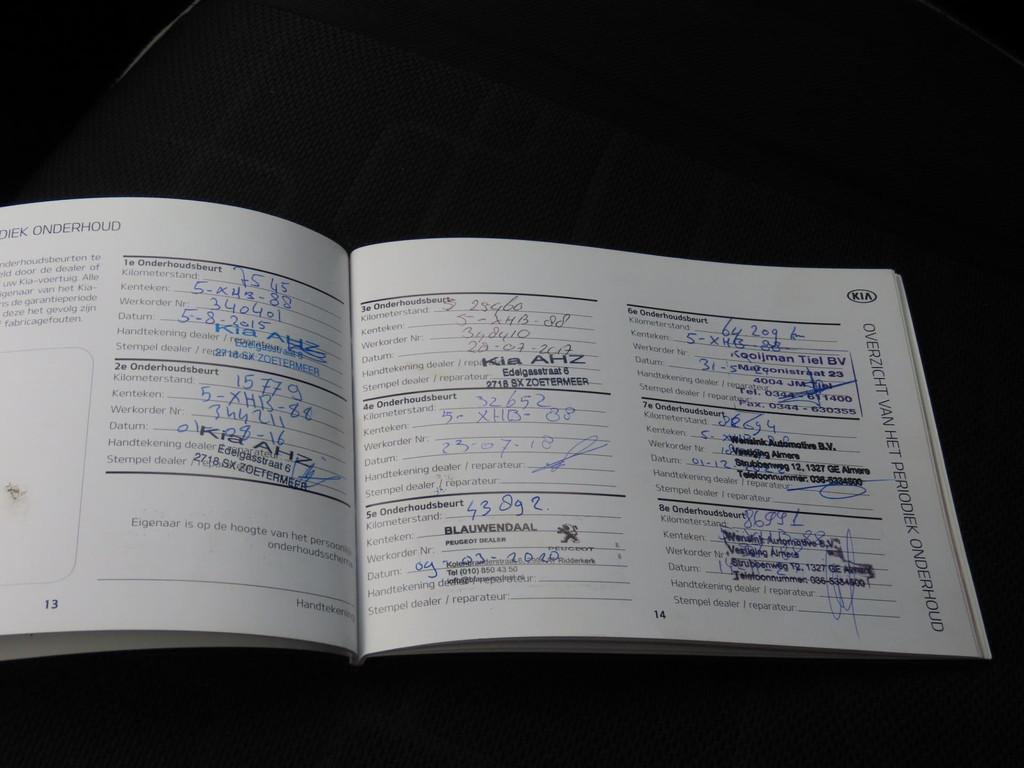 DIEK ONDERHOUD
nderhoudsbeurten te
eld door de dealer of
uw Kia-voertuig. Alle
igenaar van het Kia-
ns de garantieperiode
deze het gevolg zijn
fabricagefouten.
1e Onderhoudsbeurt
Kilometerstand: 7545
Kenteken: 5-XHB-88
Werkorder Nr: 340401
Datum: 5-8-2015
Handtekening dealer /
Stempel dealer /
Kia AHZ
Edelgasstraat 6
2718 SX ZOETERMEER
2e Onderhoudsbeurt
Kilometerstand: 15779
Kenteken: 5-XHB-88
Werkorder Nr: 344211
Datum:
Handtekening dealer
Stempel dealer
Kia AHZ
Edelgasstraat 6
2718 SX ZOETERMEER
Eigenaar is op de hoogte van het
onderhoudsschema
Handtekening
13
3e Onderhoudsbeurt
Kilometerstand:
Kenteken: 5-XHB-88
Werkorder Nr:
Datum: 20-07-2017
Handtekening dealer /
Stempel dealer / reparateur:
Kia AHZ
Edelgasstraat 6
2718 SX ZOETERMEER
4e Onderhoudsbeurt
Kilometerstand: 32652
Kenteken: 5-XHB-88
Werkorder Nr:
Datum: 23-07-18
Handtekening dealer / reparateur:
Stempel dealer / reparateur:
5e Onderhoudsbeurt
Kilometerstand: 43892.
Kenteken:
BLAUWENDAAL
PEUGEOT DEALER
PEUGEOT
Werkorder Nr:
Datum: 09-03-2020
Ridderkerk
Tel (010) 850 43 50
Handtekening dealer / reparateur:
Stempel dealer / reparateur:
14
KIA
6e Onderhoudsbeurt
Kilometerstand: 64209
Kenteken: 5-XHB-88
Werkorder Nr:
Datum: 31-5
Handtekening dealer / reparateur
Stempel dealer /
Kooijman Tiel BV
Marconistraat 23
4004 JM Tiel
Tel. 0344 - 611400
Fax. 0344 - 630355
7e Onderhoudsbeurt
Kilometerstand:
Kenteken:
Werkorder Nr:
Datum: 01-12
Handtekening dealer /
Stempel dealer / reparateur:
Wensink Automotive B.V.
Vestiging Almere
Strubbenweg 12, 1327 GE Almere
Telefoonnummer: 036-5334500
8e Onderhoudsbeurt
Kilometerstand:
Kenteken:
Werkorder Nr
Datum:
Handtekening dealer / reparateur:
Stempel dealer / reparateur:
Wensink Automotive B.V.
Vestiging Almere
Strubbenweg 12, 1327 GE Almere
Telefoonnummer: 036-5334500
OVERZICHT VAN HET PERIODIEK ONDERHOUD